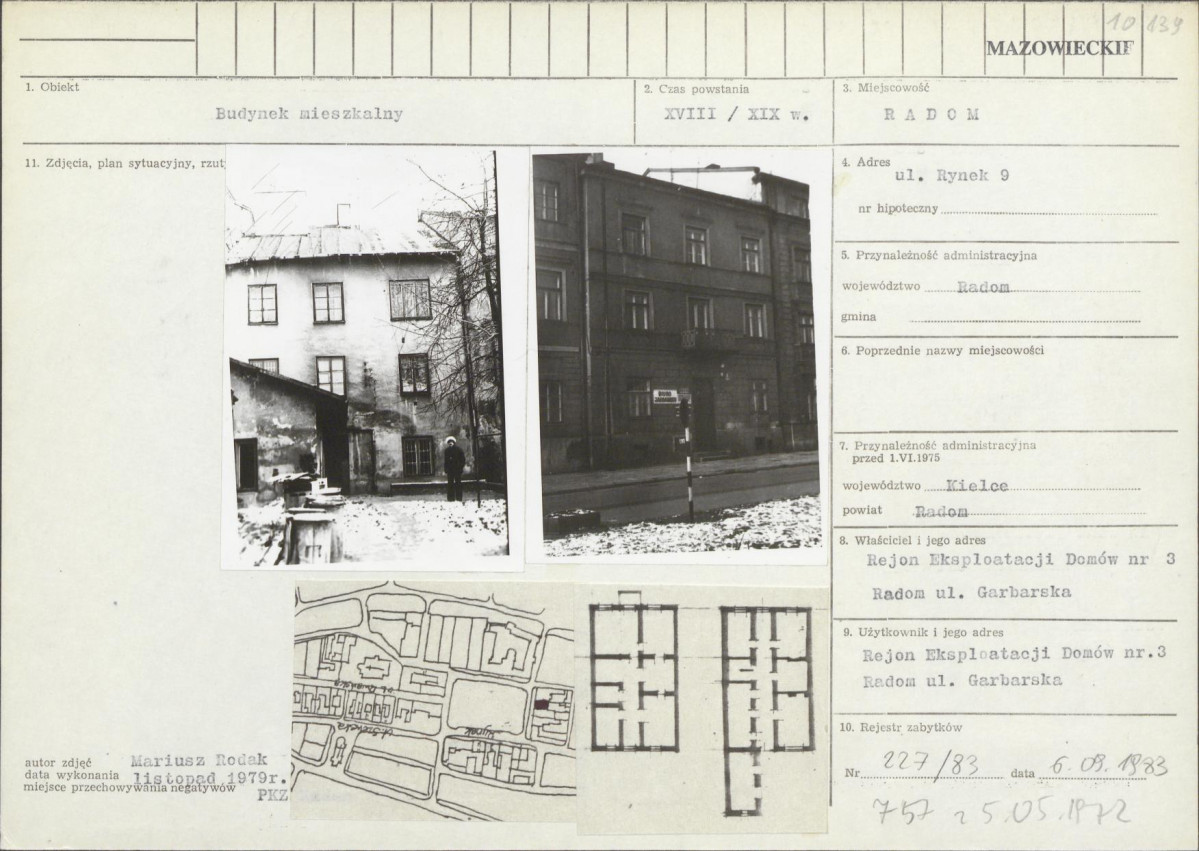 10 139
MAZOWIECKIE
1. Obiekt
Budynek mieszkalny
2. Czas powstania
XVIII / XIX w.
3. Miejscowość
RADOM
11. Zdjęcia, plan sytuacyjny, rzut
4. Adres
ul. Rynek 9
nr hipoteczny
5. Przynależność administracyjna
województwo Radom
gmina
6. Poprzednie nazwy miejscowości
7. Przynależność administracyjna
przed 1.VI.1975
województwo Kielce
powiat Radom
8. Właściciel i jego adres
Rejon Eksploatacji Domów nr 3
Radom ul. Garbarska
9. Użytkownik i jego adres
Rejon Eksploatacji Domów nr.3
Radom ul. Garbarska
10. Rejestr zabytków
Nr 227/83 data 6.09.1983
757 z 5.05.1972
Rynek
autor zdjęć Mariusz Rodak
data wykonania listopad 1979r.
miejsce przechowywania negatywów
PKZ